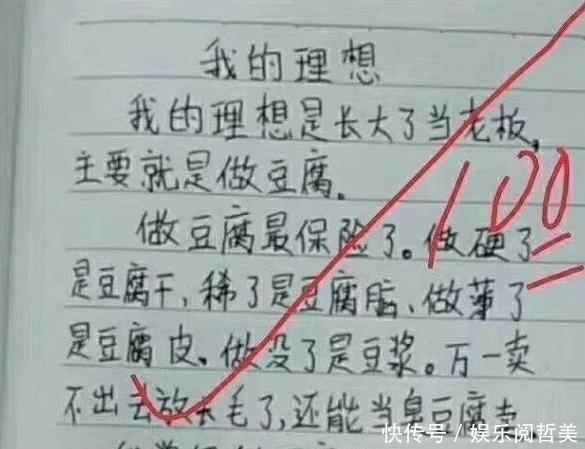 我的理想
我的理想是长大了当老板,
主要就是做豆腐。
做豆腐最保险了。做硬了
是豆腐干,稀了是豆腐脑、做薄了
是豆腐皮、做没了是豆浆。万一卖
不出去放长毛了,还能当臭豆腐卖。
100
快传号/娱乐阅哲美